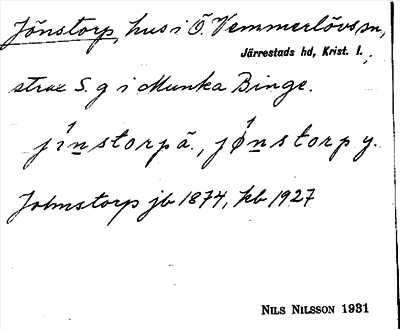 Jönstorp, hus i Ö. Vemmerlövs sn,
Järrestads hd, Krist. l.;
strax S. g i Munka Binge.
jı̊nstorpa., jønstorp y.
Johnstorp jb 1874, kb 1927
NILS NILSSON 1931